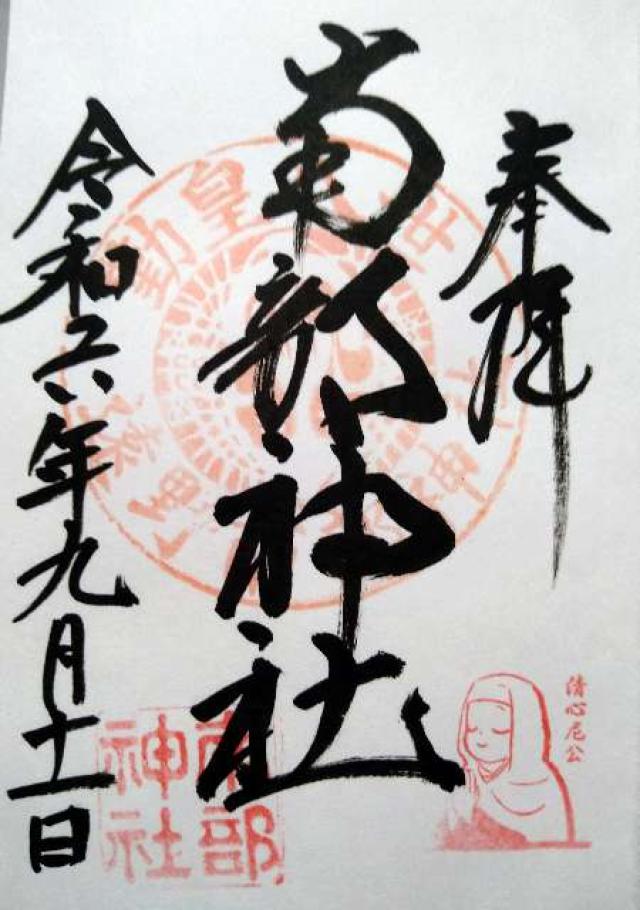 奉拝
南部神社
令和六年九月十一日
勤皇八世
南部
神社
清心尼公